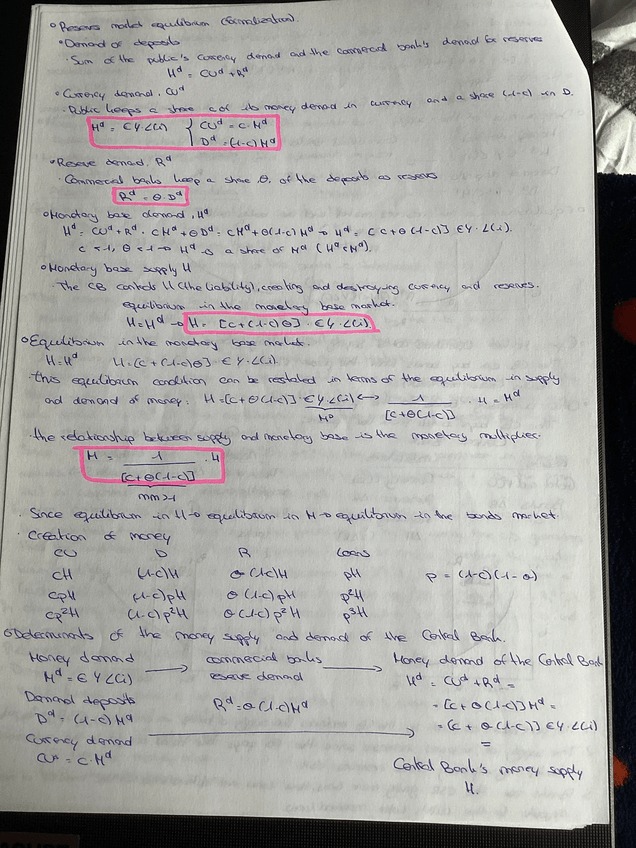 o Reserve market equilibrium (formalization).
• Demand of deposits
· Sum of the public's currency demand and the commercial bank's demand for reserves
Hᵈ = CUᵈ + Rᵈ
• Currency demand, CUᵈ
· Public keeps a share c of its money demand in currency and a share (1-c) in D.
Mᵈ = €Y·L(i) { CUᵈ = c·Mᵈ
Dᵈ = (1-c)Mᵈ
• Reserve demand, Rᵈ
· Commercial banks keep a share θ, of the deposits as reserves
Rᵈ = θ·Dᵈ
o Monetary base demand, Hᵈ
Hᵈ = CUᵈ + Rᵈ = CMᵈ + θDᵈ = CMᵈ + θ(1-c)Mᵈ → Hᵈ = [c + θ(1-c)] €Y·L(i).
c < 1, θ < 1 → Hᵈ is a share of Mᵈ (Hᵈ < Mᵈ).
o Monetary base supply H
· The CB controls H (the liability), creating and destroying currency and reserves.
equilibrium in the monetary base market.
H = Hᵈ → H = [c + (1-c)θ]·€Y·L(i)
o Equilibrium in the monetary base market.
H = Hᵈ H = [c + (1-c)θ]·€Y·L(i)
· This equilibrium condition can be restated in terms of the equilibrium in supply
and demand of money: H = [c + θ(1-c)] €Y·L(i) ↔ 1/[c + θ(1-c)] · H = Mᵈ
Mᵈ
· The relationship between supply and monetary base is the monetary multiplier.
M = 1/[c + θ(1-c)] · H
mm>1
· Since equilibrium in H → equilibrium in M → equilibrium in the bonds market.
· Creation of money
CU D R Loans
cH (1-c)H θ(1-c)H pH p = (1-c)(1-θ)
cpH (1-c)pH θ(1-c)pH p²H
cp²H (1-c)p²H θ(1-c)p²H p³H
o Determinants of the money supply and demand of the Central Bank.
Money demand → commercial banks → Money demand of the Central Bank
Mᵈ = €Y L(i) reserve demand Hᵈ = CUᵈ + Rᵈ =
Demand deposits Rᵈ = θ(1-c)Mᵈ = [c + θ(1-c)] Mᵈ =
Dᵈ = (1-c)Mᵈ = [c + θ(1-c)] €Y·L(i)
Currency demand → =
CUᵈ = c·Mᵈ Central Bank's money supply
H.